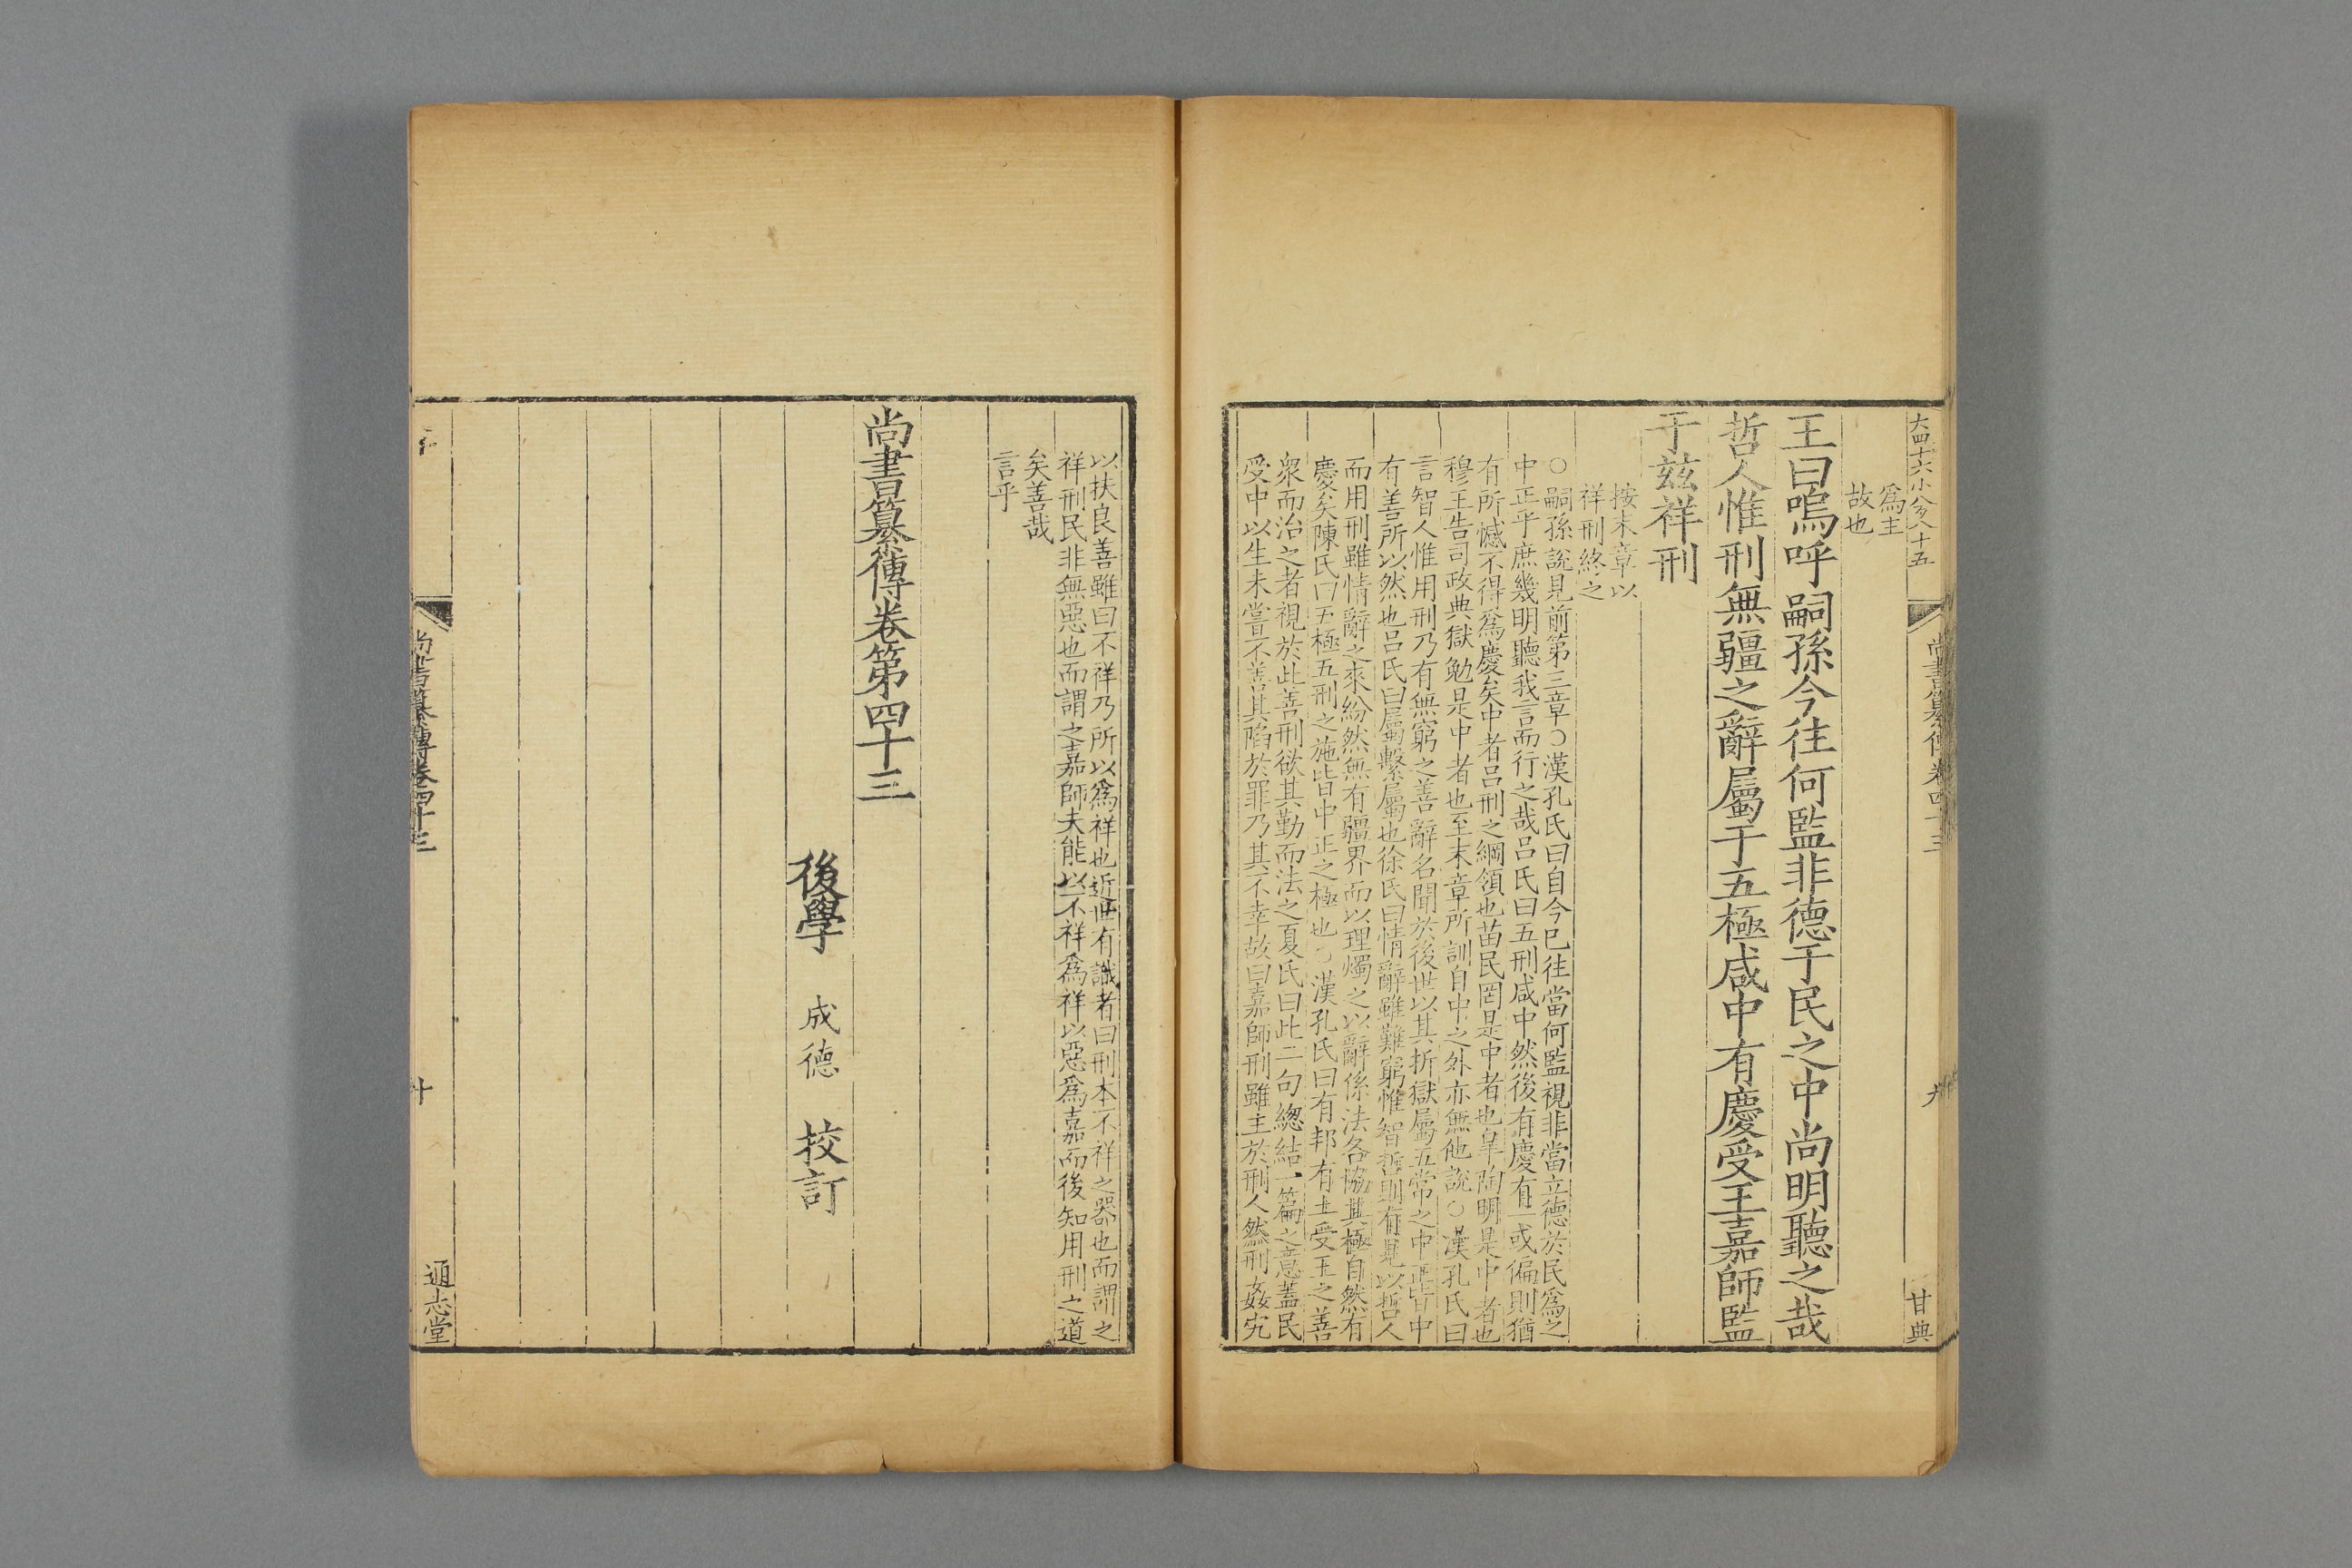 大四十六小八分八十五
尚書纂傳卷四十三
九
甘典
爲主
故也
王曰嗚呼嗣孫今往何監非德于民之中尚明聽之哉
哲人惟刑無疆之辭屬于五極咸中有慶受王嘉師監
于兹祥刑
按末章以
祥刑終之
○嗣孫說見前第三章○漢孔氏曰自今已往當何監視非當立德於民爲之
中正乎庶幾明聽我言而行之哉吕氏曰五刑咸中然後有慶有一或偏則猶
有所憾不得爲慶矣中者吕刑之綱領也苗民罔是中者也臯陶明是中者也
穆王告司政典獄勉是中者也至末章所訓自中之外亦無他說○漢孔氏曰
言智人惟用刑乃有無窮之善辭名聞於後世以其折獄屬五常之中正皆中
有善所以然也吕氏曰屬繫屬也徐氏曰情辭雖難窮惟智哲則有見以哲人
而用刑雖情辭之來紛然無有疆界而以理燭之以辭係法各協其極自然有
慶矣陳氏曰五極五刑之施皆中正之極也○漢孔氏曰有邦有土受王之善
衆而治之者視於此善刑欲其勤而法之夏氏曰此二句緫結一篇之意蓋民
受中以生未嘗不善其陷於罪乃其不幸故曰嘉師刑雖主於刑人然刑姦宄
以扶良善雖曰不祥乃所以爲祥也近世有識者曰刑本不祥之器也而謂之
祥刑民非無惡也而謂之嘉師夫能以不祥爲祥以惡爲嘉而後知用刑之道
矣善哉
言乎
尚書纂傳卷第四十三
後學 成德 挍訂
尚書纂傳卷四十三
十
通志堂